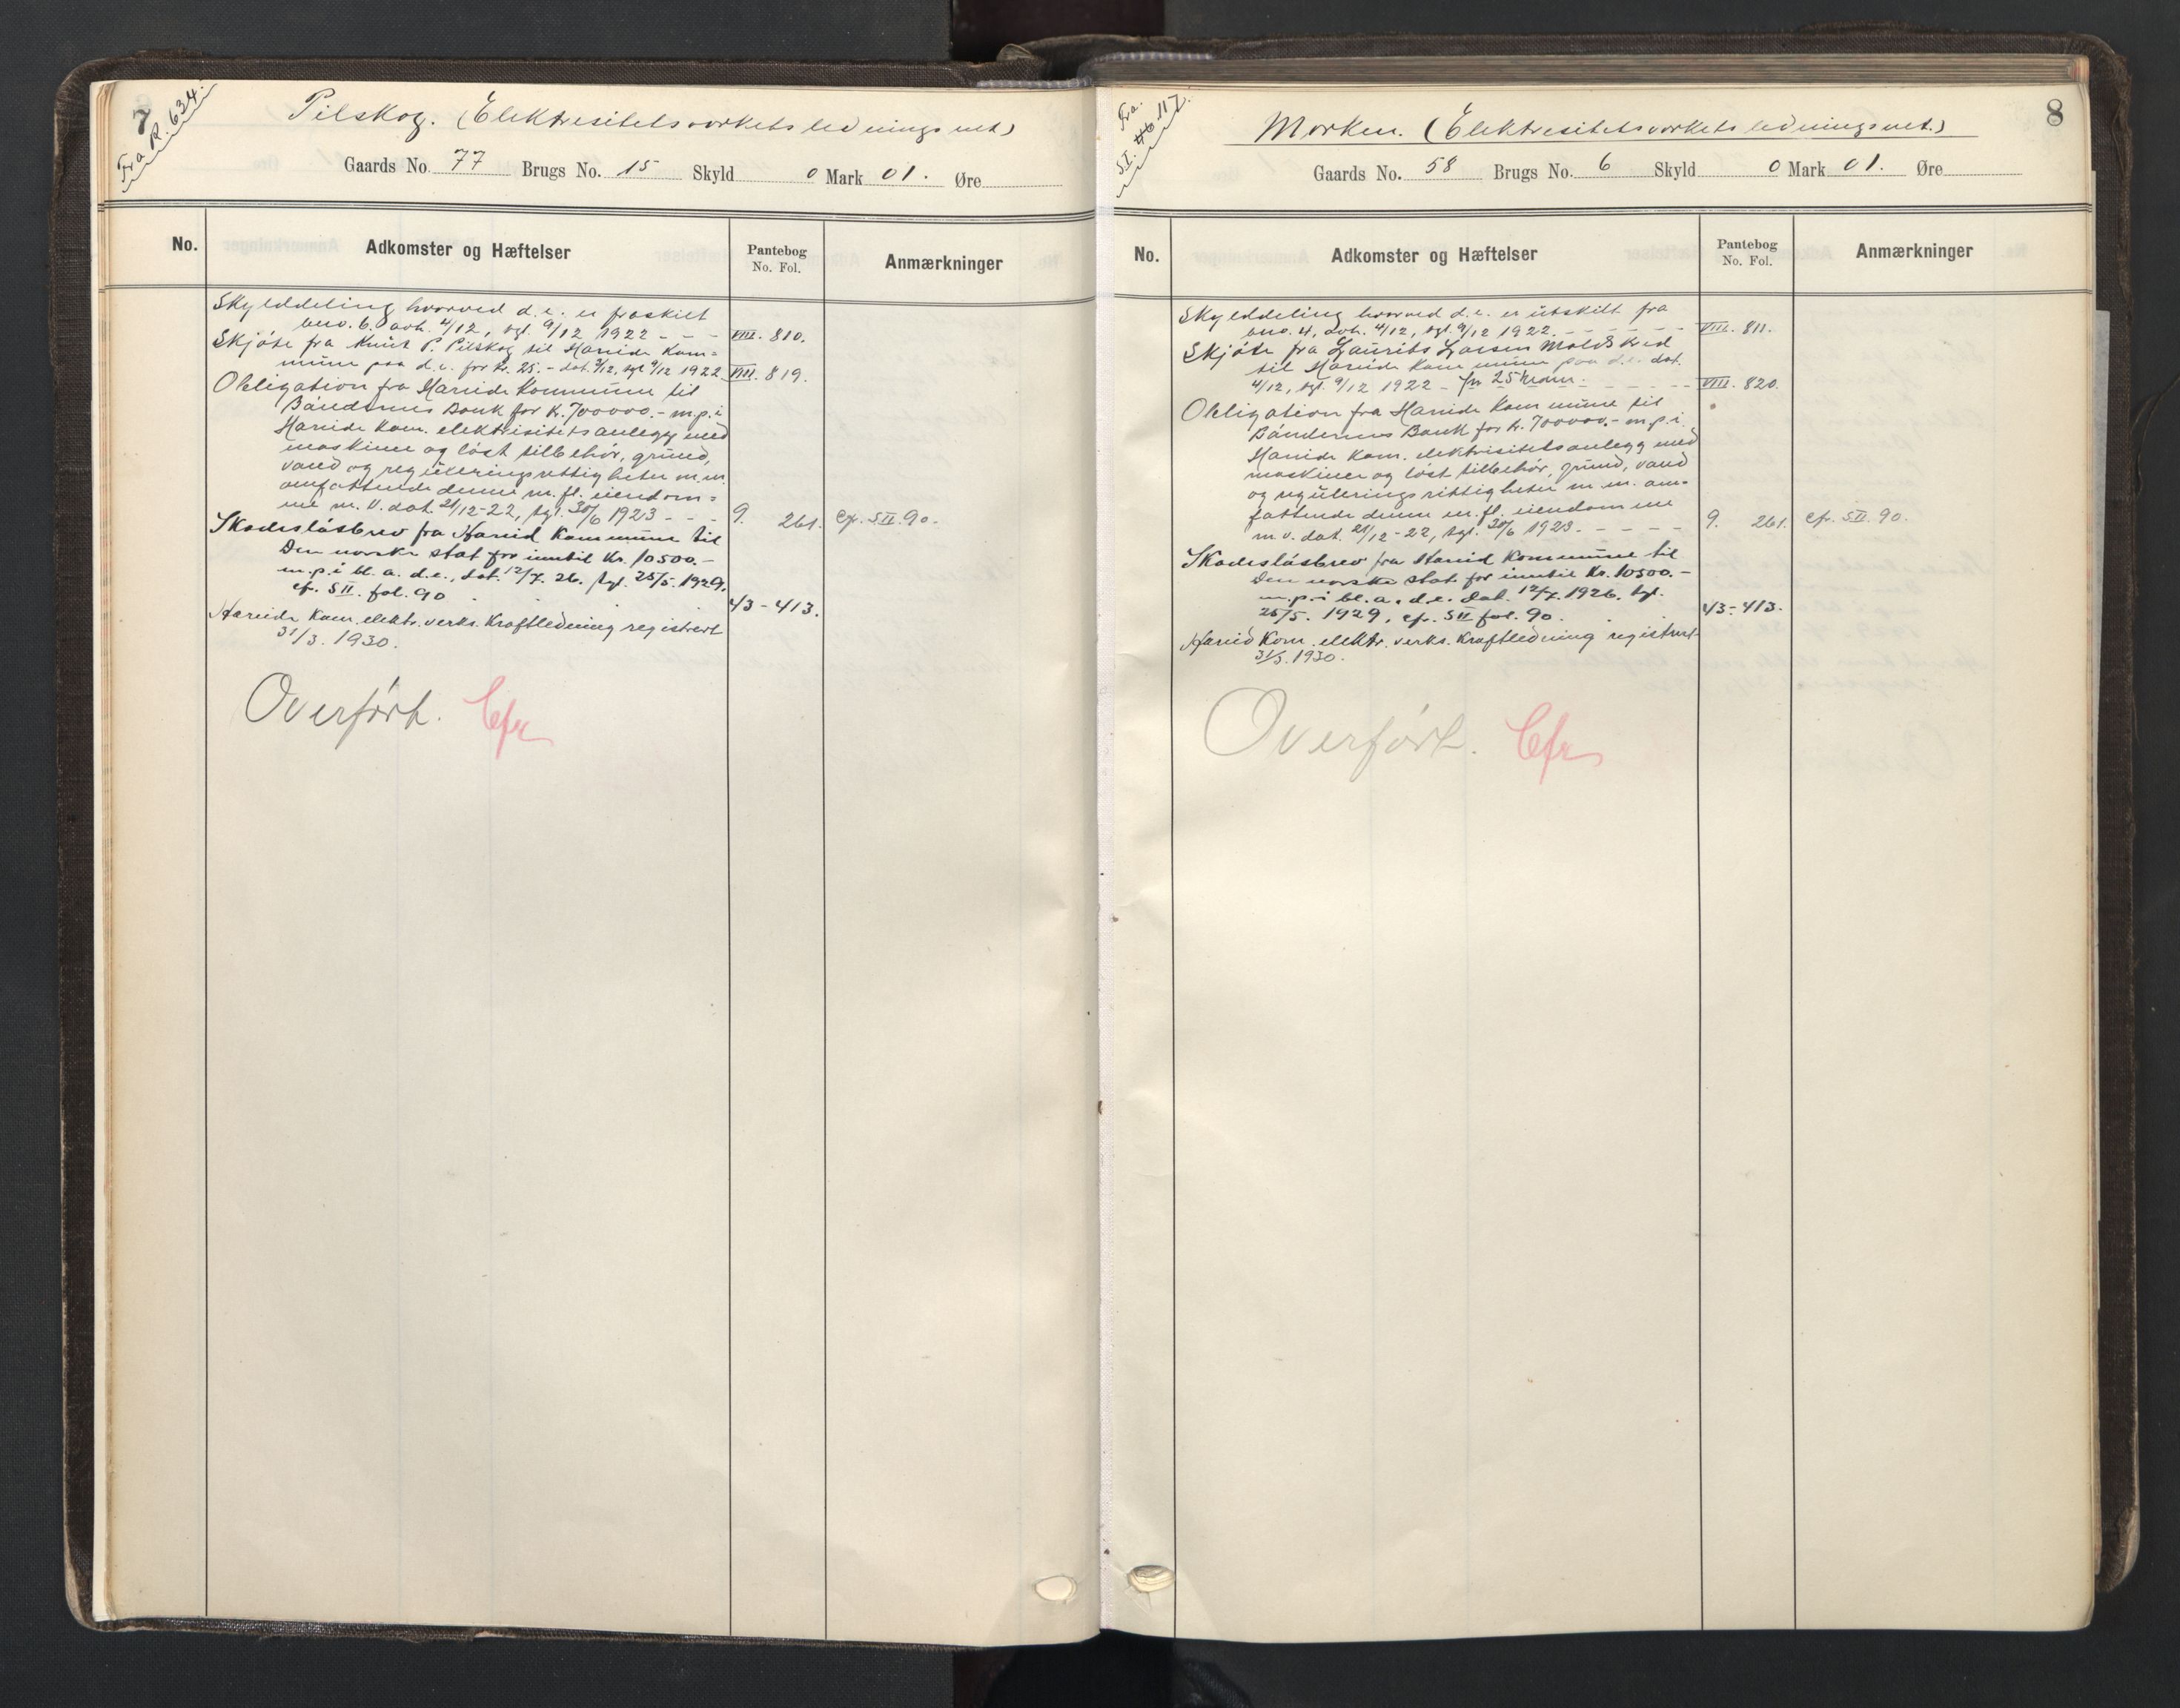 7
Fra R. 634.
Pilskog. (Elektresitetsverkets ledningsnet)
Gaards No. 77 Brugs No. 15 Skyld 0 Mark 01. Øre
No. Adkomster og Hæftelser Pantebog No. Fol. Anmærkninger
Skylddeling hvorved d.e. er fraskilt
bno. 6. avh. 4/12, tgl. 9/12 1922 - - - VIII. 810.
Skjøte fra Knut P. Pilskog til Hareide Kom=
mune paa d.e. for kr. 25.- dat. 9/12, tgl. 9/12 1922 VIII. 819.
Obligation fra Hareide Kommune til
Bøndernes Bank for kr. 700000.- m.p.i
Hareide Kom. elektrisitetsanlegg med
maskiner og løst tilbehør, grund,
vand og reguleringsrettigheter m.m.
omfattende denne m.fl. eiendom=
me m.v. dat. 21/12-22, tgl. 30/6 1923 - - - 9. 261. cfr. SII. 90.
Skadesløsbrev fra Hareid Kommune til
Den norske stat for inntil Kr. 10500.-
m.p.i bl.a. d.e., dat. 12/7. 26. tgl. 25/5. 1929.
cfr. SII. fol. 90 43-413.
Hareide Kom. elektr. verks. Kraftledning registrert
31/3. 1930.
Overført. Cfr
8
Fra.
SI. 117.
Morken. (Elektresitetsverkets ledningsnet.)
Gaards No. 58 Brugs No. 6 Skyld 0 Mark 01. Øre
No. Adkomster og Hæftelser Pantebog No. Fol. Anmærkninger
Skylddeling hvorved d.e. er utskilt fra
bno. 4, avh. 4/12, tgl. 9/12 1922. - - - - - - VIII. 811.
Skjøte fra Laurits Larsen Moldskred
til Hareide Kommune paa d.e. dat.
4/12, tgl. 9/12 1922 - for 25 kroner. - - - - - VIII. 820.
Obligation fra Hareide Kommune til
Bøndernes Bank for kr. 700000.- m.p.i.
Hareide Kom. elektrisitetsanlegg med
maskiner og løst tilbehør, grund, vand
og reguleringsrettigheter m.m. om=
fattende denne m.fl. eiendomme
m.v. dat. 21/12-22, tgl. 30/6 1923. - - - - 9. 261. cfr. SII. 90.
Skadesløsbrev fra Hareid Kommune til
Den norske stat for inntil Kr. 10500.-
m.p.i bl.a. d.e. dat. 12/7. 1926. tgl.
25/5. 1929, cfr. SII fol. 90. 43-413.
Hareid Kom. elektr. verks. Kraftledning registrert
31/3. 1930.
Overført. Cfr